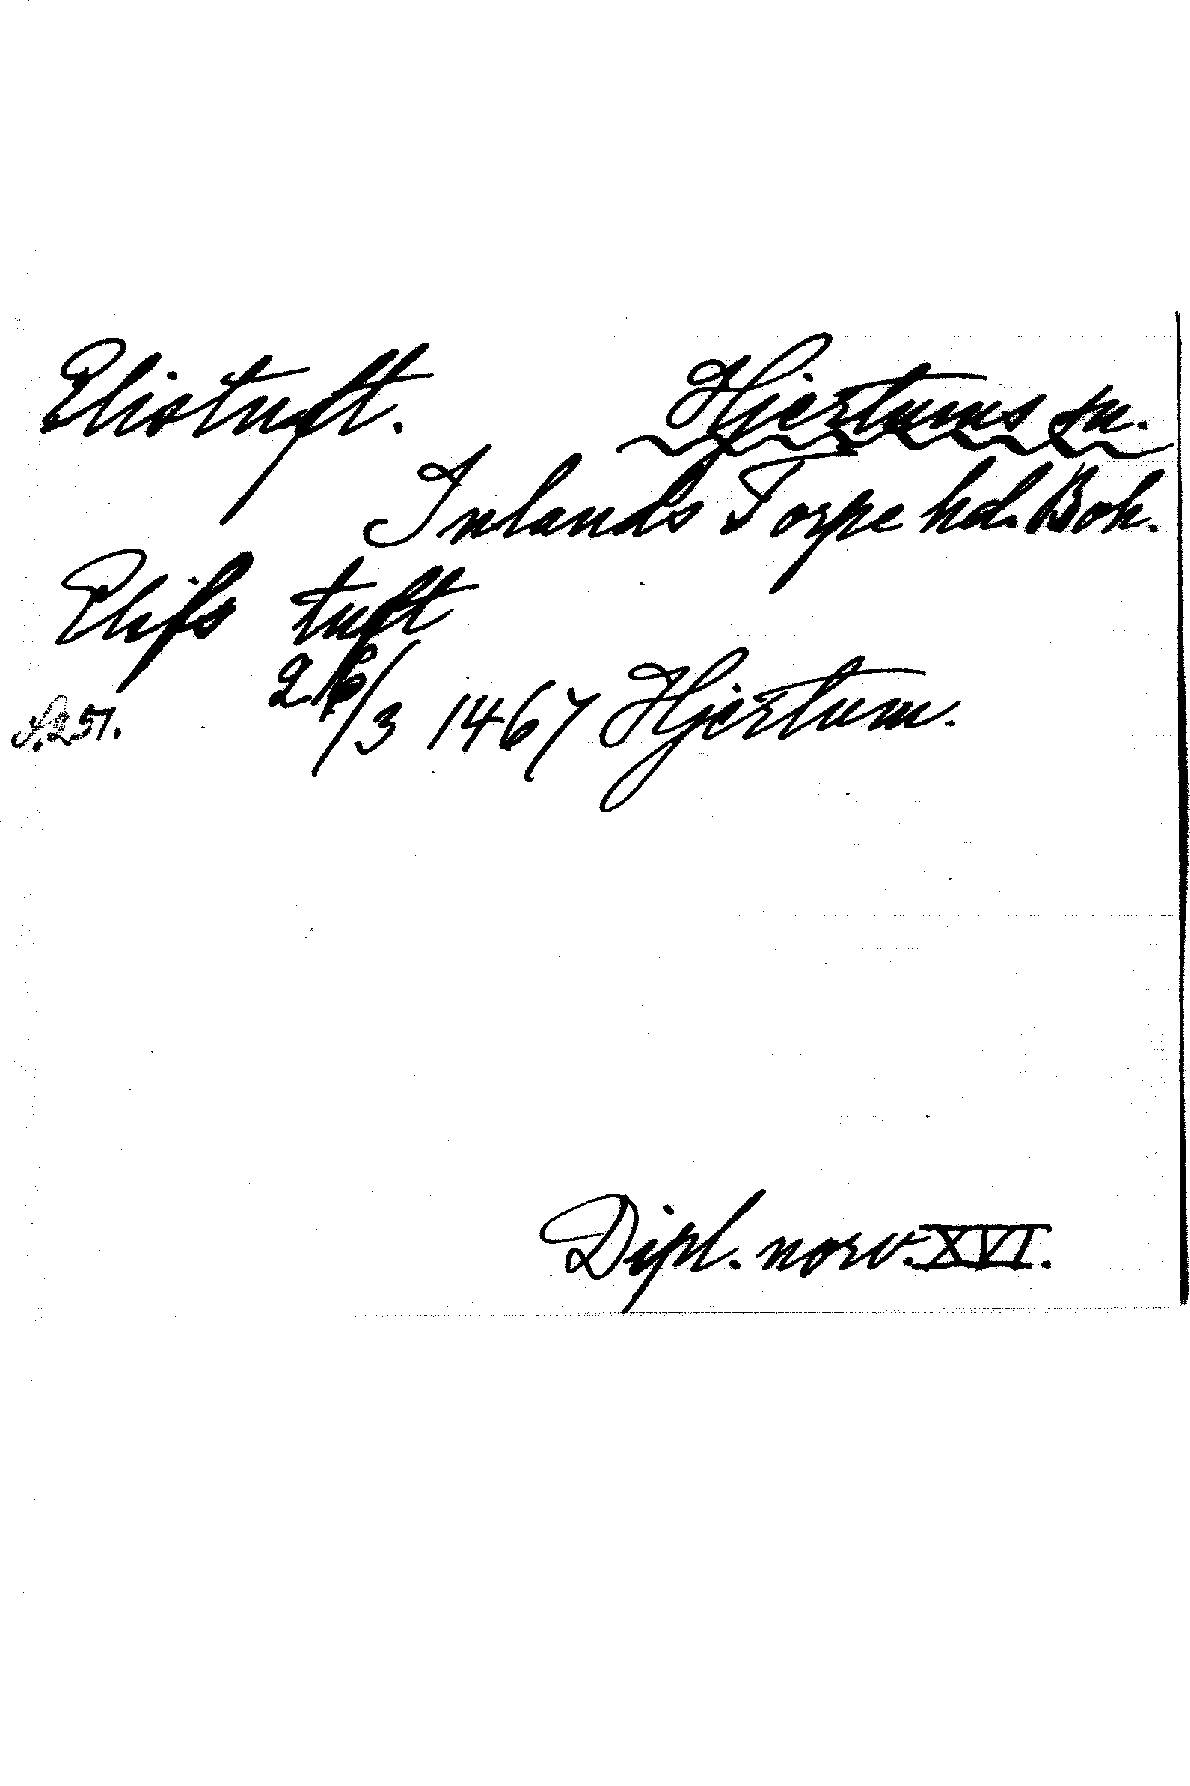 Elistuft. Hjertums sn.
Inlands Torpe hd. Boh.
Elifs tuft
S. 251. 26/3 1467 Hjertum.
Dipl. norv. XVI.